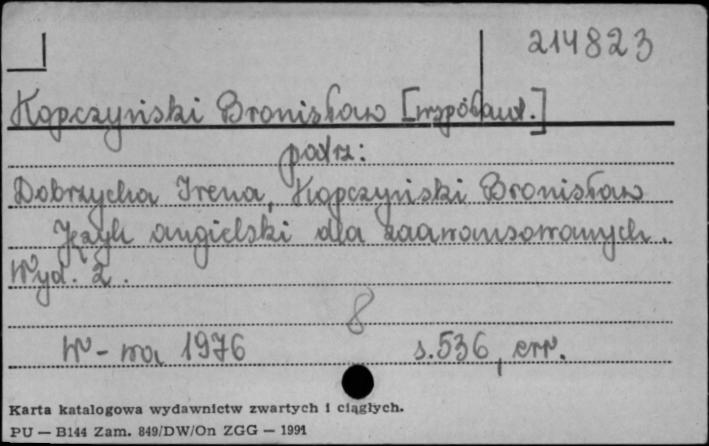 214823
Kopczyński Bronisław [współaut.]
patrz:
Dobrzycka Irena, Kopczyński Bronisław
Język angielski dla zaawansowanych.
Wyd. 2.
8
W-wa 1976 s.536, err.
Karta katalogowa wydawnictw zwartych i ciągłych.
PU — B144 Zam. 849/DW/On ZGG — 1991